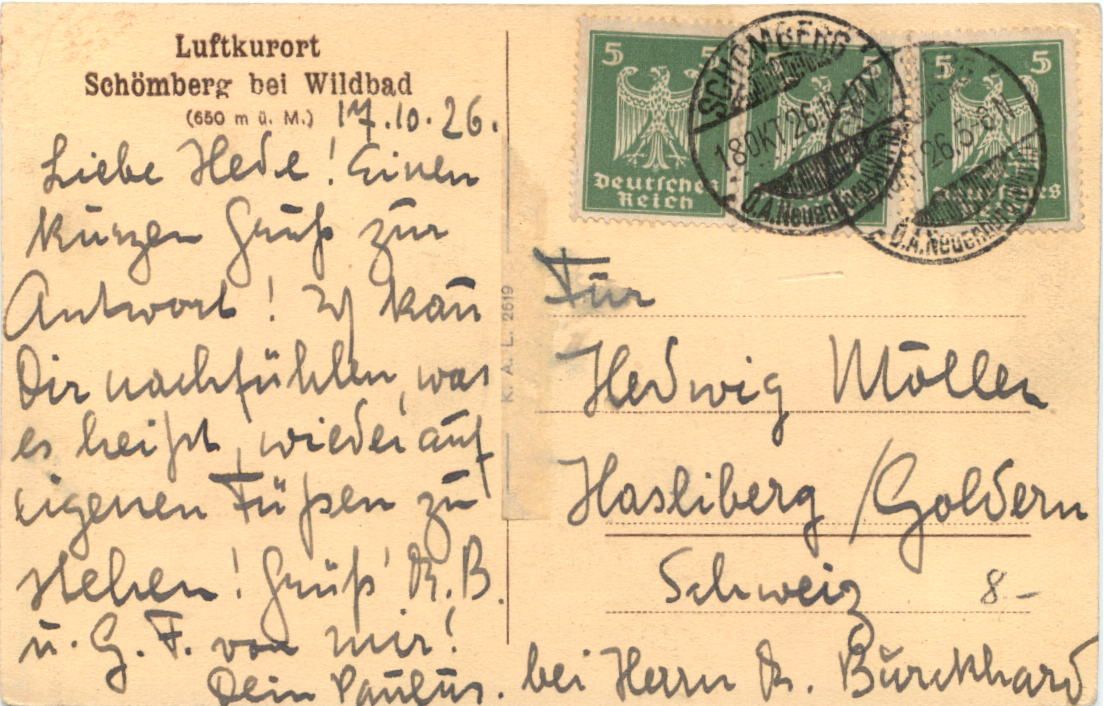 Luftkurort
Schömberg bei Wildbad
(650 m ü. M.) 17.10.26.
Liebe Hede! Einen
kurzen Gruß zur
Antwort! Ich kan̄
Dir nachfühlen, was
es heißt, wieder auf
eigenen Füßen zu
stehen! Grüß' R. B.
u. G. F. von mir!
Dein Paulus.
K. A. L. 2619
5 5
Deutsches
Reich
5
5 5
SCHÖMBERG
18 OKT. 26. 10-11 V.
O.A. Neuenbürg (Württ)
26. 5-6 N.
O.A. Neuenbürg (Württ)
Für
Hedwig Möller
Hasliberg / Goldern
Schweiz 8-
bei Herrn R. Burckhard